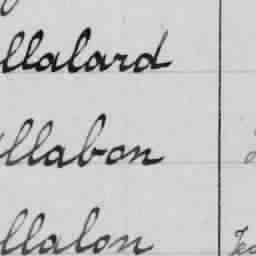 llalard
llabon
llalon